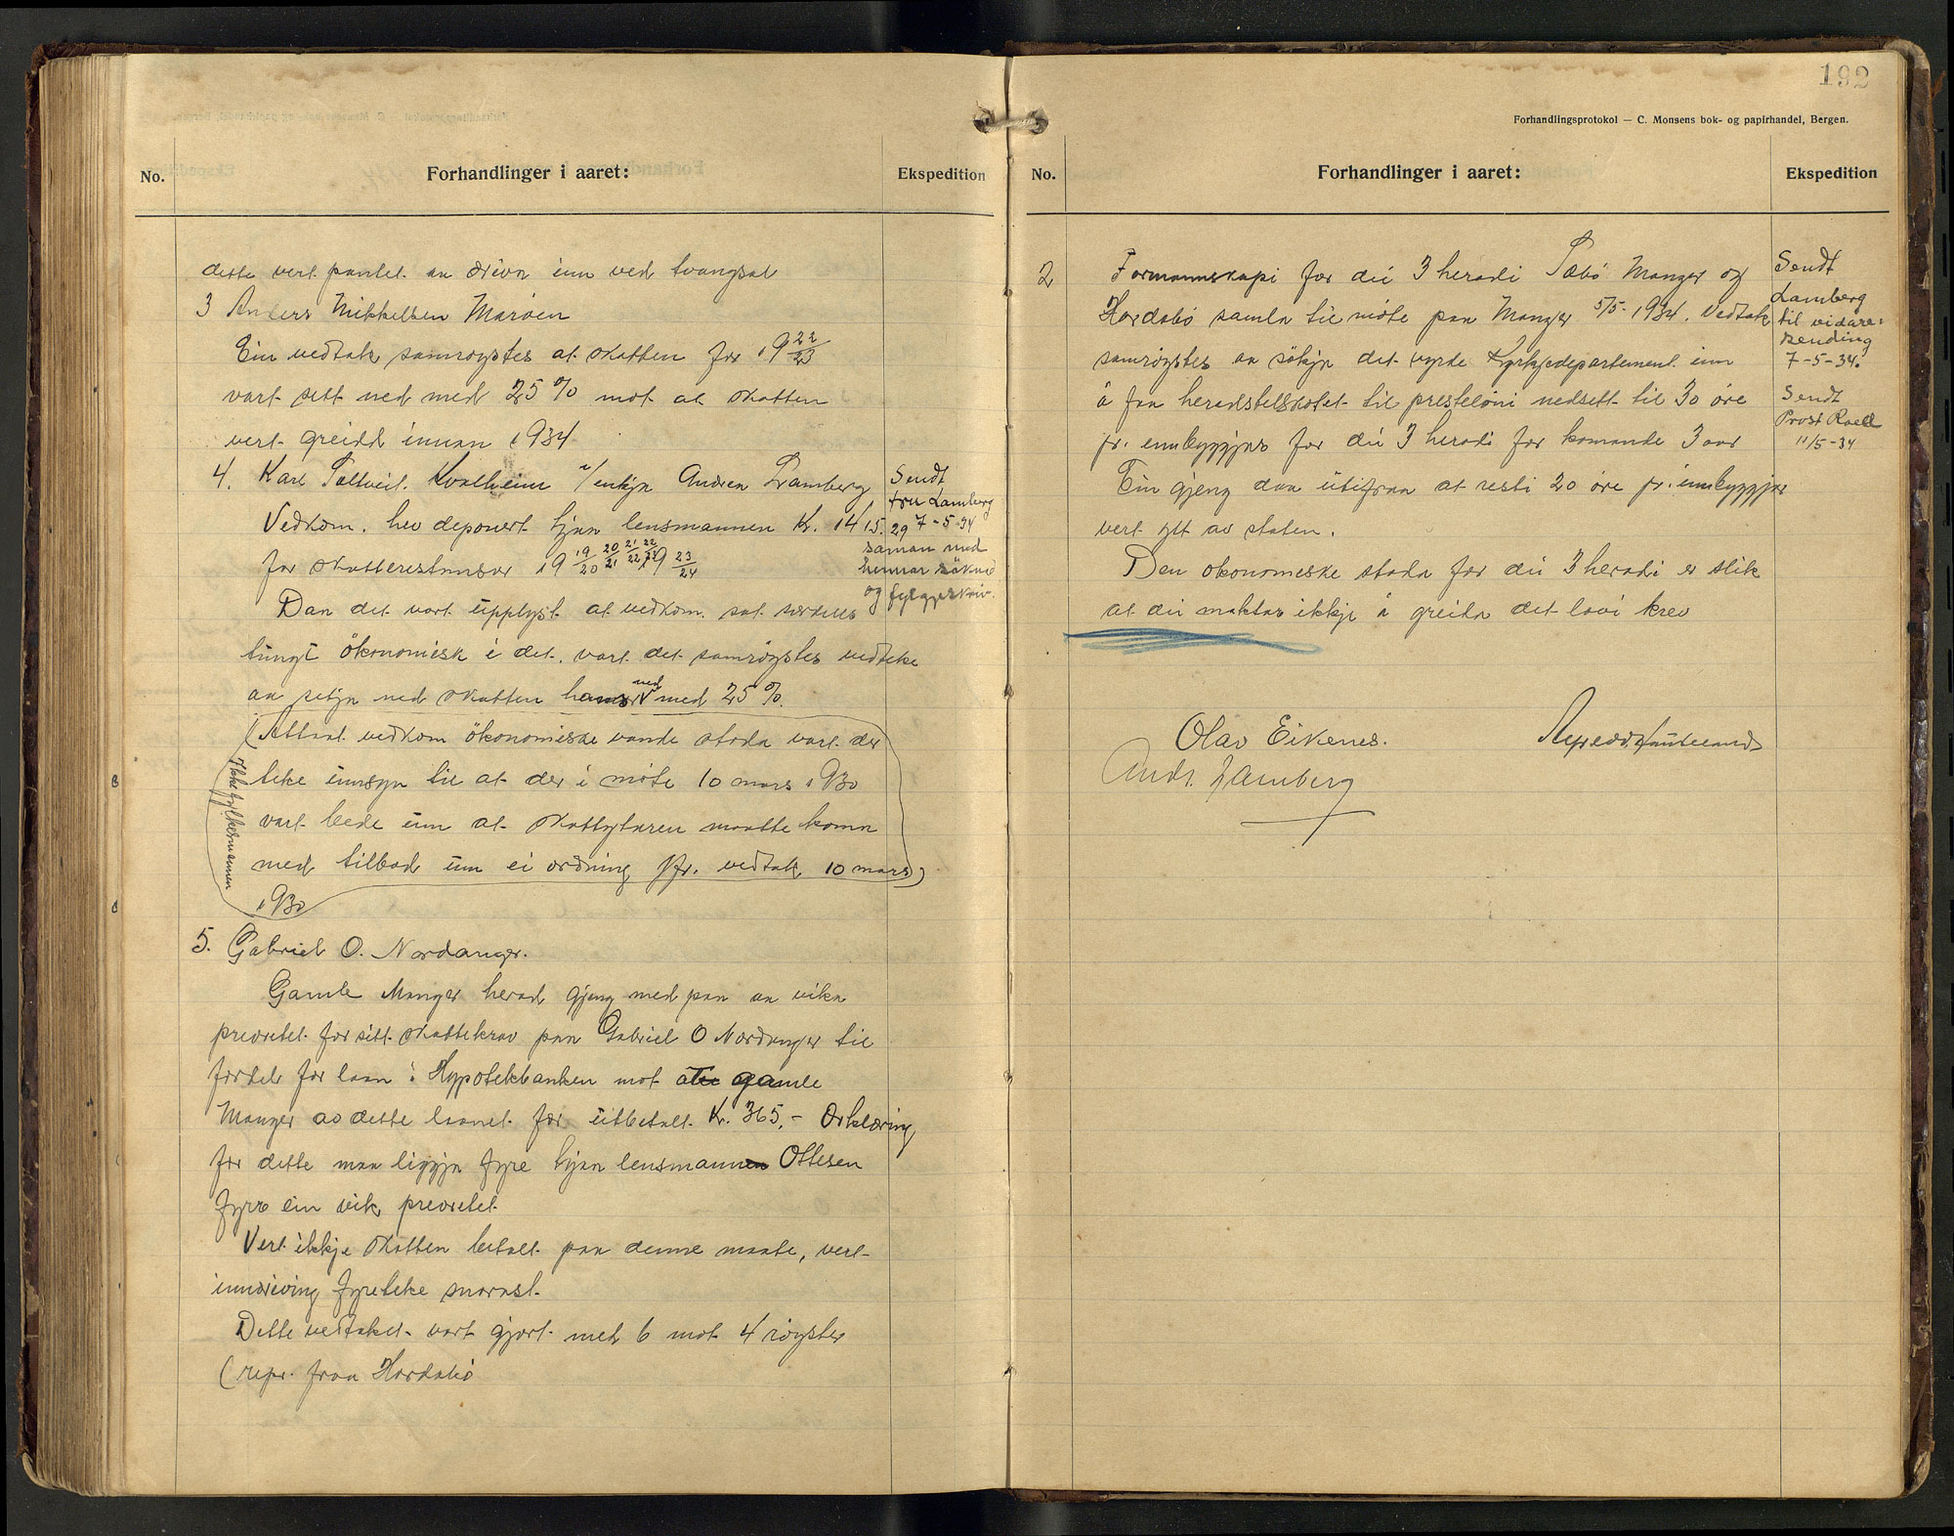 No.
Forhandlinger i aaret:
Ekspedition
dette vert pantet aa driva inn ved tvangsal
3 Anders Mikkelsen Marøen
Ein vedtak samrøystes at skatten for 1922/23
vart sett ned med 25% mot at skatten
vert greidd innan 1934
4. Karl Soltveit, Kvalheim v/enkja Andrea Lamberg
Vedkom. hev deponert hjaa lensmannen Kr. 1415.29
for skatterestansar 19 19/20 20/21 21/22 22/23 19 23/24
Daa det vart upplyst at vedkom. sat serdeles
tungt økonomisk i det, vart det samrøystes vedteke
aa setja ned skatten hans ned med 25%.
(Attval vedkom økonomiske vande stoda vart der
teke innsyn til at der i møte 10 mars 1930
vart bede um at skattytaren maatte koma
med tilbod um ei ordning jfr. vedtak 10 mars)
1930
Ikke fylkesmannen
Sendt
fru Lamberg
7-5-34
saman med
hennar søknad
og fylgjeskriv.
5. Gabriel O. Nordanger.
Gamle Manger herad gjeng med paa aa vika
prioritet for sitt skattekrav paa Gabriel O Nordanger til
fordel for laan i Hypotekbanken mot at gamle
Manger av dette laanet fær utbetalt Kr. 365,- Erklæring
for dette maa liggja fyre hjaa lensmannen Ottesen
fyrr ein vik prioritet.
Vert ikkje skatten betalt paa denne maate, vert
inndriving fyreteke snarast.
Dette vedtaket vart gjort med 6 mot 4 røyster
(repr. fraa Hordabø
192
Forhandlingsprotokol — C. Monsens bok- og papirhandel, Bergen.
No.
Forhandlinger i aaret:
Ekspedition
2
Formannskapi for dei 3 heradi Sæbø Manger og
Hordabø samla til møte paa Manger 5/5-1934. Vedtak
samrøystes aa søkja det vyrde Kyrkjedepartement um
å faa heradstilskotet til presteløni nedsett til 30 øre
pr. innbyggjar for dei 3 heradi for komande 3 aar
Ein gjeng daa utifraa at resti 20 øre pr. innbyggjar
vert ytt av staten.
Den økonomiske stoda for dei 3 heradi er slik
at dei maktar ikkje å greida det lovi krev
Sendt
Lamberg
til vidare-
sending
7-5-34.
Sendt
Prost Roell
11/5-34
Olav Eikenes.
Andr. Lamberg